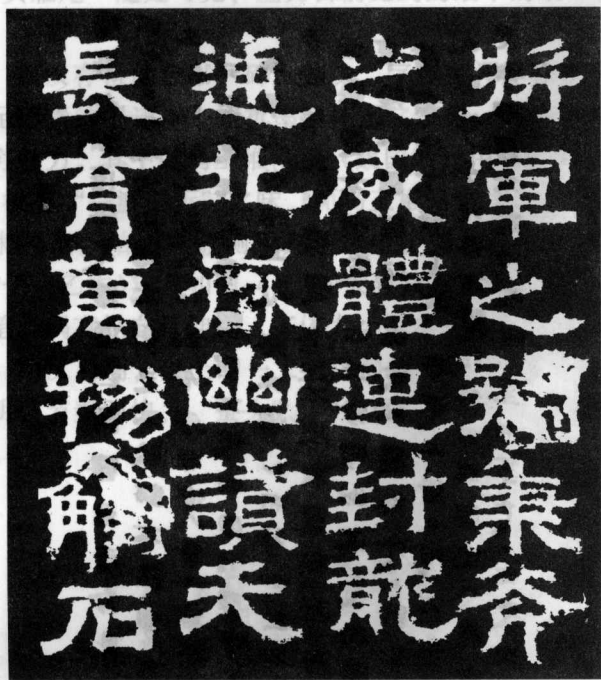 將軍之號秉斧
之威體連封龍
通北嶽幽讚天
長育萬物觸石